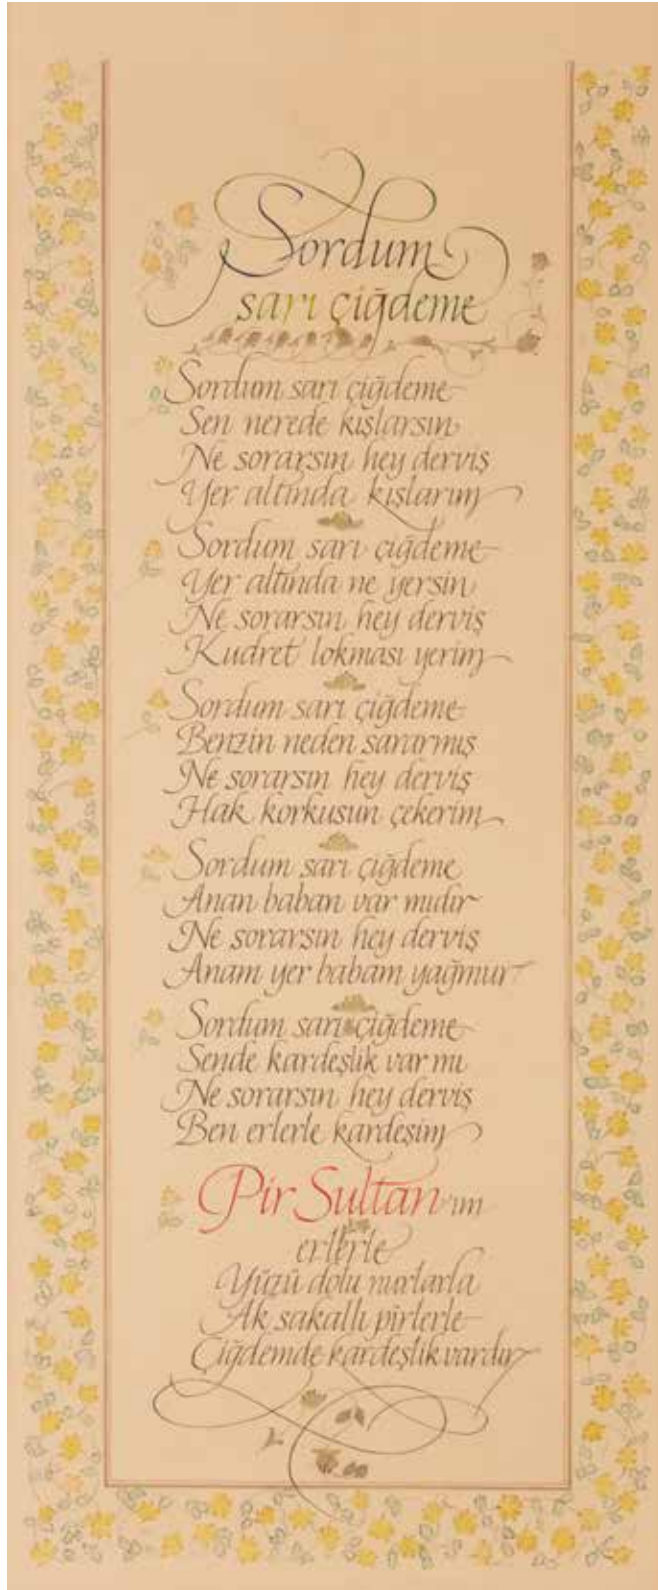 Sordum
sarı çiğdeme
Sordum sarı çiğdeme
Sen nerede kışlarsın
Ne sorarsın hey derviş
Yer altında kışlarım
Sordum sarı çiğdeme
Yer altında ne yersin
Ne sorarsın hey derviş
Kudret lokması yerim
Sordum sarı çiğdeme
Benzin neden sararmış
Ne sorarsın hey derviş
Hak korkusun çekerim
Sordum sarı çiğdeme
Anan baban var mıdır
Ne sorarsın hey derviş
Anam yer babam yağmur
Sordum sarı çiğdeme
Sende kardeşlik var mı
Ne sorarsın hey derviş
Ben erlerle kardeşim
Pir Sultan'ım
erlerle
Yüzü dolu nurlarla
Ak sakallı pirlerle
Çiğdemde kardeşlik vardır